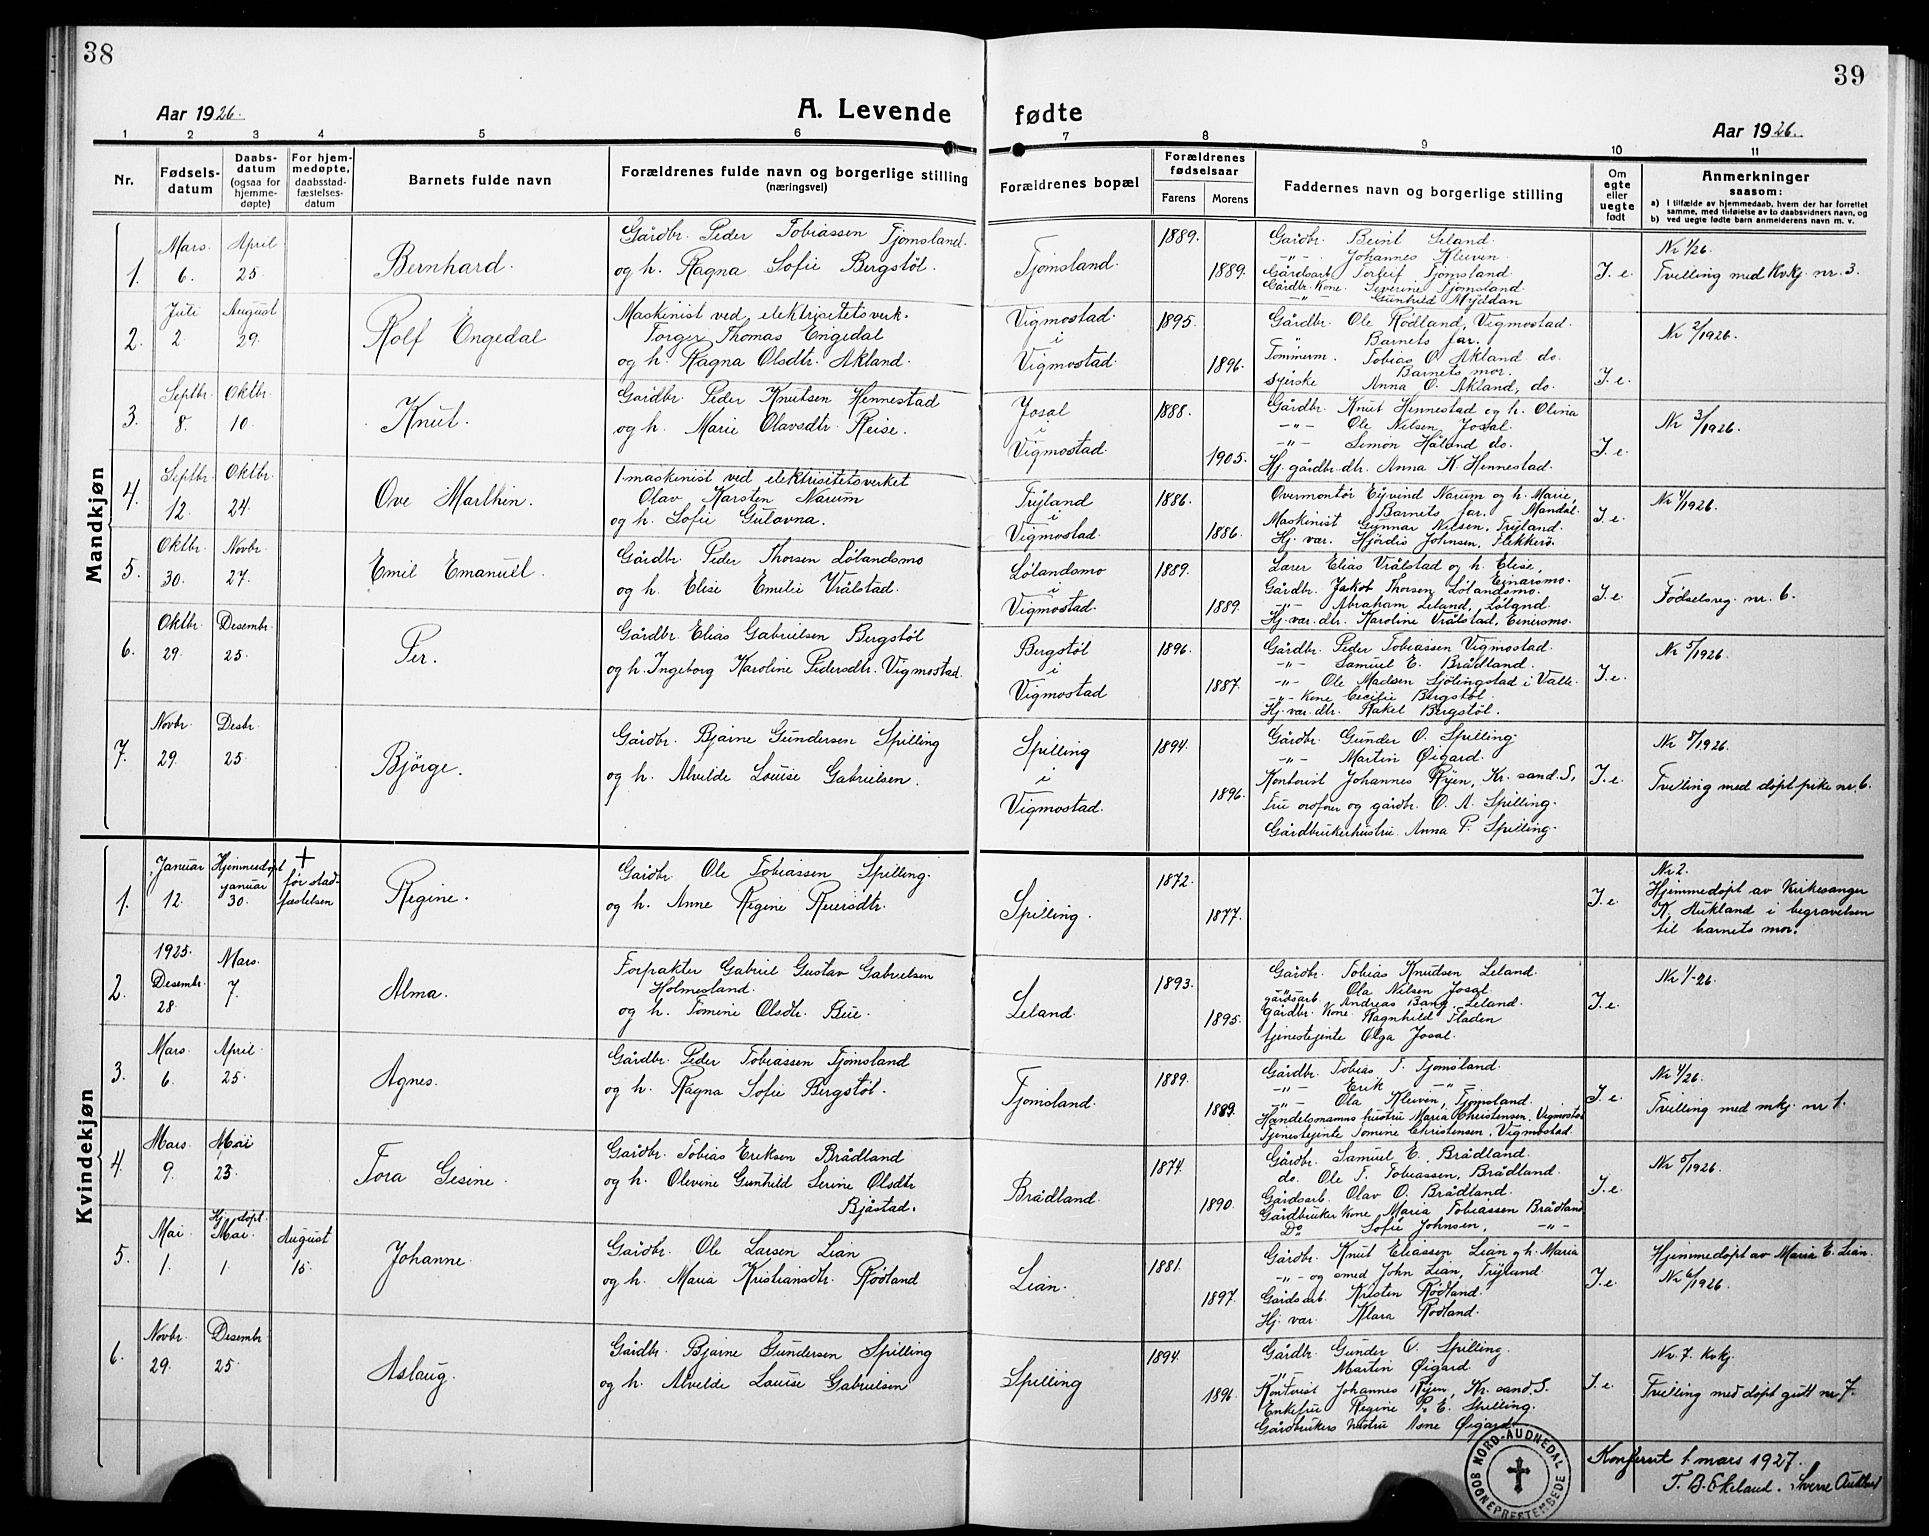 38
39
Aar 1926.
A. Levende fødte
Aar 1926.
1 2 3 4 5 6 7 8 9 10 11
Nr.
Fødsels-
datum
Daabs-
datum
(ogsaa for
hjemme-
døpte)
For hjem-
medøpte,
daabsstad-
fæstelses-
datum
Barnets fulde navn
Forældrenes fulde navn og borgerlige stilling
(næringsvei)
Forældrenes bopæl
Forældrenes
fødselsaar
Farens Morens
Faddernes navn og borgerlige stilling
Om
egte
eller
uegte
født
Anmerkninger
saasom:
a) I tilfælde av hjemmedaab, hvem der har forrettet
samme, med tilføielse av to daabsvidners navn, og
b) ved uegte fødte barn anmelderens navn m. v.
Mandkjøn
1. Mars 6. April 25.
Bernhard.
Gårdbr. Peder Tobiassen Tjomsland.
og h. Ragna Sofie Bergstøl.
Tjomsland.
1889. 1889.
Gårdbr. Beint Leland.
-"- Johannes Kleiven.
Gårdsarb. Torleif Tjomsland
Gårdbr. Kone. Severine Tjomsland.
-"- Gunhild Myddan
I. e.
Nr 1/26.
Tvilling med Kvkj. nr. 3.
2. Juli 2. August 29.
Rolf Engedal
Maskinist ved elektrisitetsverk.
Torger Thomas Engedal
og h. Ragna Olsdtr. Akland.
Vigmostad.
i
Vigmostad.
1895. 1896.
Gårdbr. Ole Rødland, Vigmostad.
Barnets far.
Tømmerm. Tobias O. Akland do.
Barnets mor.
syerske Anna O. Akland, do.
I. e.
Nr 2/1926.
3. Septbr. 8. Oktbr. 10.
Knut.
Gårdbr. Peder Knutsen Hennestad
og h. Marie Olavsdtr. Reise.
Josal
i
Vigmostad.
1888. 1905.
Gårdbr. Knut Hennestad og h. Olina
-"- Ole Nilsen Josal.
-"- Simon Håland do.
Hj. gårdbr. dtr. Anna K. Hennestad.
I. e.
Nr 3/1926.
4. Septbr. 12. Oktbr. 24.
Ove Marthin.
1. maskinist ved elektrisitetsverket
Olav Karsten Narum
og h. Sofie Gulovna.
Tryland
i
Vigmostad.
1886. 1886.
Overmontør Eyvind Narum og h. Marie,
Barnets far. Mandal.
Maskinist Gunnar Nilsen, Tryland.
Hj. var. Hjördis Johnsen, Flekkerø.
I. e.
Nr 4/1926.
5. Oktbr. 30. Novbr. 27.
Emil Emanuel.
Gårdbr. Peder Thorsen Lølandsmo
og h. Elise Emilie Vrålstad.
Lølandsmo
i
Vigmostad.
1889. 1889.
Lærer Elias Vrålstad og h. Elise,
Einarsmo.
Gårdbr. Jakob Thorsen Lølandsmo.
-"- Abraham Leland, Løland.
Hj. var. dtr. Karoline Vrålstad, Einersmo.
I. e.
Fødselsreg. nr. 6.
6. Oktbr. 29. Desembr. 25.
Per.
Gårdbr. Elias Gabrielsen Bergstøl
og h. Ingeborg Karoline Pedersdtr. Vigmostad.
Bergstøl
i
Vigmostad
1896. 1887.
Gårdbr. Peder Tobiassen Vigmostad.
-"- Samuel E. Brådland.
-"- Ole Madsen Sjölingstad i Valle.
-"- Kone Cecilie Bergstøl.
Hj. var. dtr. Rakel Bergstøl.
I. e.
Nr 5/1926.
7. Novbr. 29. Desbr. 25.
Björge.
Gårdbr. Bjarne Gundersen Spilling
og h. Alvilde Louise Gabrielsen.
Spilling
i
Vigmostad.
1894. 1896.
Gårdbr. Gunder O. Spilling.
-"- Martin Øigard.
Kontorist Johannes Ryen, Kr. sand. S,
Fru og gårdbr. O. A. Spilling.
Gårdbrukerhustru Anna P. Spilling.
I. e.
Nr 8/1926.
Tvilling med döpt pike nr. 6.
Kvindekjøn
1. Januar 12. Hjemmedöpt januar 30. + før stad-
fæstelsen
Regine.
Gårdbr. Ole Tobiassen Spilling.
og h. Anne Regine Reiersdtr.
Spilling.
1872. 1877.
I. e.
Nr 2.
Hjemmedöpt av Kirkesanger
K. Aukland i begravelsen
til barnets mor.
2. 1925. Desembr. 28. Mars. 7.
Alma.
Forpakter Gabriel Gustav Gabrielsen
Holmesland.
og h. Tomine Olsdtr. Beie.
Leland.
1893. 1895.
Gårdbr. Tobias Knudsen Leland.
-"- Ola Nilsen Josal.
gårdsarb. Andreas Bang, Leland.
Gårdbr. Kone. Ragnhild Fladen
tjenestejente Olga Josal.
I. e.
Nr 1/-26.
3. Mars. 6. April. 25.
Agnes.
Gårdbr. Peder Tobiassen Tjomsland
og h. Ragna Sofie Bergstøl.
Tjomsland.
1889. 1889.
Gårdbr. Tobias T. Tjomsland.
-"- Erik -"-
-"- Ola Kleiven, Tjomsland.
Handelsmanns hustru Maria Christensen, Vigmostad
Tjenestejente Tomine Christensen, Vigmostad.
I. e.
Nr 4/26.
Tvilling med mkj. nr 1.
4. Mars. 9. Mai 23.
Tora Gesine.
Gårdbr. Tobias Eriksen Brådland
og h. Olevine Gunhild Serine Olsdtr
Bjåstad.
Brådland.
1874. 1890.
Gårdbr. Samuel E. Brådland.
do. Ole T. Tobiassen, Brådland.
Gårdsarb. Olav O. Brådland.
Gårdbruker Kone, Maria Tobiassen Brådland
Do Sofie Johnsen, -"-
I. e.
Nr 5/1926.
5. Mai 1. Hj. döpt. Mai. 1. August 15.
Johanne.
Gårdbr. Ole Larsen Lian
og h. Maria Kristiansdtr. Rödland
Lian.
1881. 1897.
Gårdbr. Knut Eliassen Lian og h. Maria
-"- og smed John Lian, Tryland.
Gårdsarb. Kristen Rødland.
Hj. var. Klara Rødland.
I. e.
Hjemmedöpt av Maria E. Lian.
Nr 6/1926.
6. Novbr. 29. Desembr. 25.
Aslaug.
Gårdbr. Bjarne Gundersen Spilling
og h. Alvilde Louise Gabrielsen
Spilling
1894. 1896.
Gårdbr. Gunder O. Spilling.
-"- Martin Øigard.
Kontorist Johannes Ryen, Kr. sand. S.
Enkefru Regine P. E. Spilling.
Gårdbrukers hustru Asne Øigard.
I. e.
Nr. 7. Kvkj.
Tvilling med döpt gutt nr 7.
Konferert 1 mars 1927.
T. B. Ekeland. Sverre Aukland
NORD-AUDNEDAL SOGNEPRESTEMBEDE